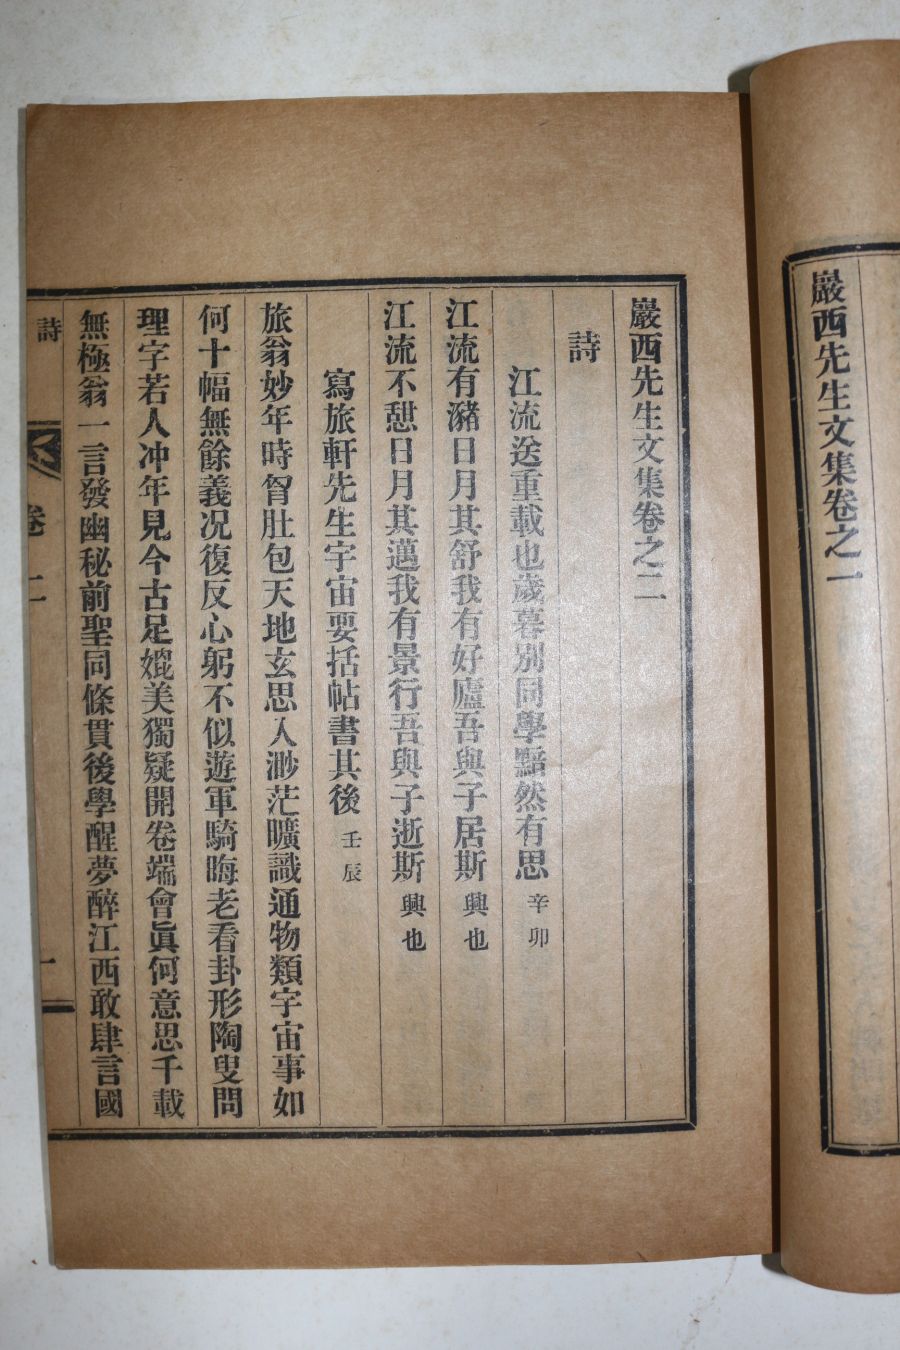 巖西先生文集卷之一
巖西先生文集卷之二
詩
江流送重載也歲暮別同學黯然有思 辛卯
江流有瀦日月其舒我有好廬吾與子居斯 興也
江流不憇日月其邁我有景行吾與子逝斯 興也
寫旅軒先生宇宙要括帖書其後 壬辰
旅翁妙年時胷肚包天地玄思入渺茫曠識通物類宇宙事如
何十幅無餘義况復反心躬不似遊軍騎晦老看卦形陶叟問
理字若人冲年見今古足媲美獨疑開卷端會眞何意思千載
無極翁一言發幽秘前聖同條貫後學醒夢醉江西敢肆言國
詩
卷二
一